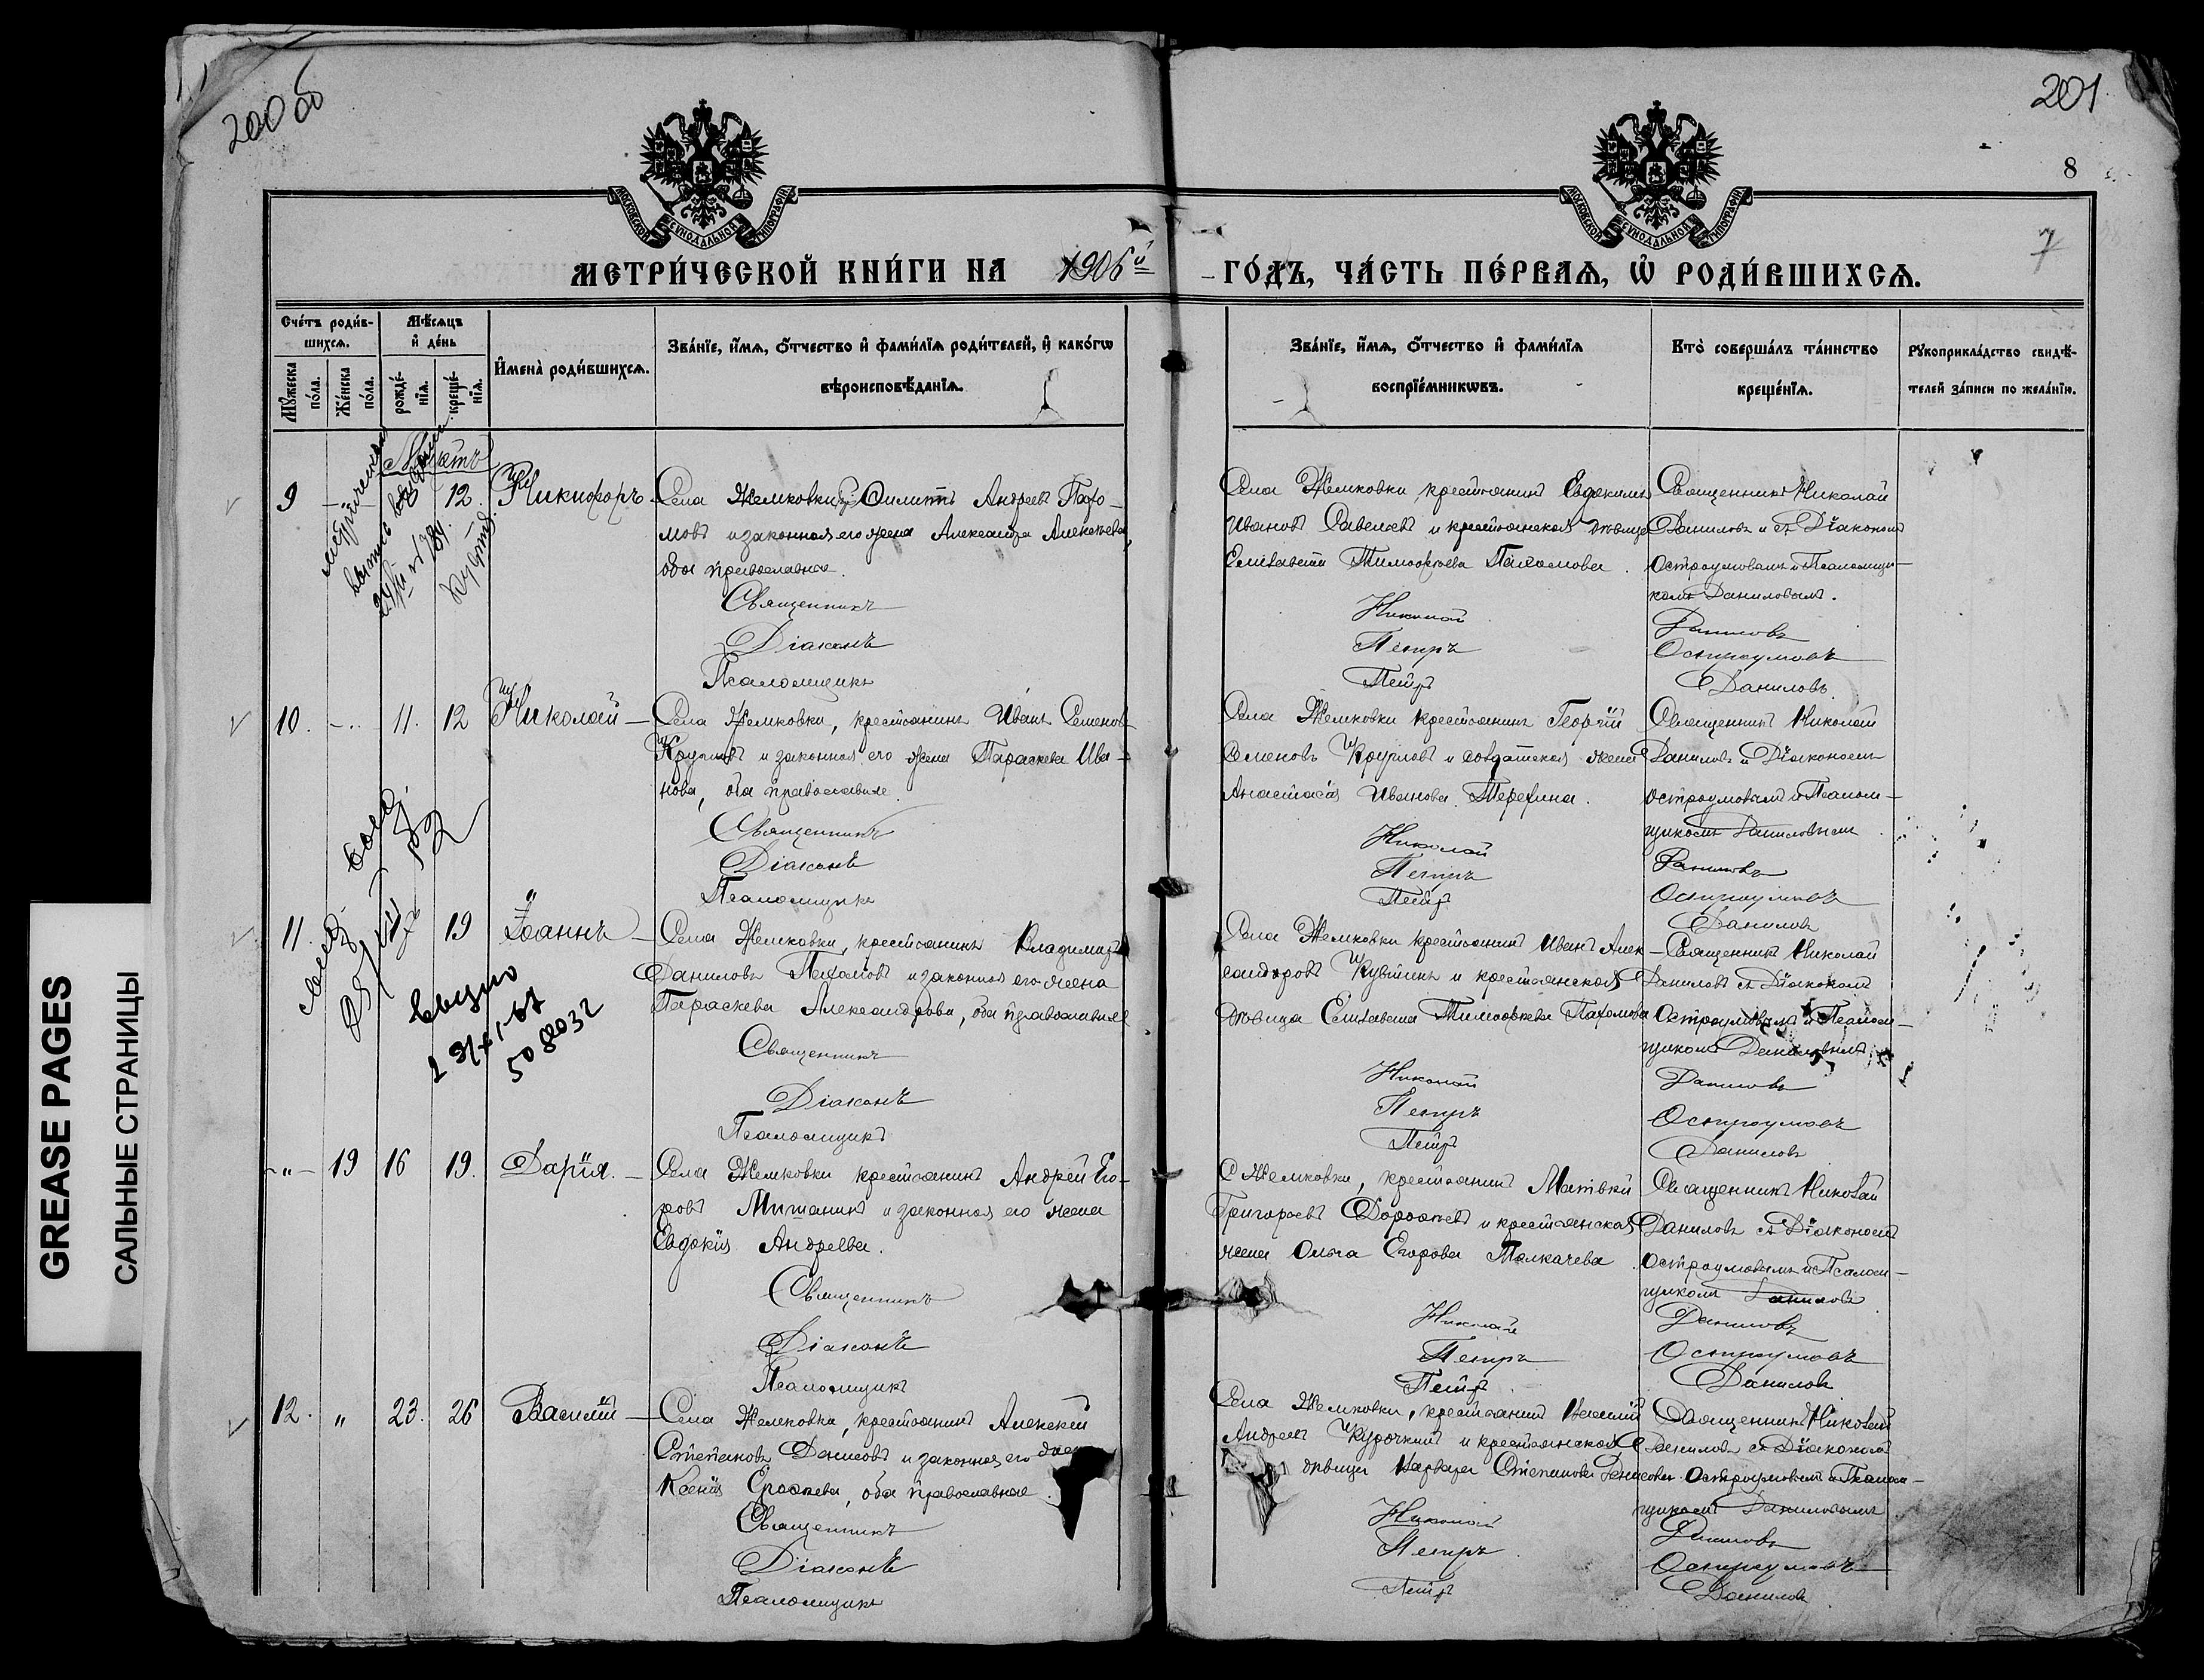 200 об
201
8
7
МОСКОВСКОЙ СѴНОДАЛЬНОЙ ТИПОГРАФІИ
МОСКОВСКОЙ СѴНОДАЛЬНОЙ ТИПОГРАФІИ
МЕТРИ́ЧЕСКОЙ КНИ́ГИ НА 1906й
ГО́ДЪ, ЧА́СТЬ ПЕ́РВАѦ, Ѡ҆ РОДИ́ВШИХСѦ.
Сче́тъ роди́в-
шихсѧ.
Мѣ́сѧцъ
и҆ де́нь
Мꙋ́жеска по́ла.
Же́нска по́ла.
рожде́-
нїѧ.
креще́-
нїѧ.
И҆мена̀ роди́вшихсѧ.
Зва́нїе, и҆́мѧ, ѻ҆́тчество и҆ фами́лїѧ роди́телей, и҆ како́гѡ
вѣроисповѣ́данїѧ.
Зва́нїе, и҆́мѧ, ѻ҆́тчество и҆ фами́лїѧ
воспрїе́мникѡвъ.
Кто̀ соверша́лъ та́инство
креще́нїѧ.
Рꙋкоприкла́дство свидѣ́-
телей за́писи по жела́нїю.
Мартъ
9 – 12. Никифоръ
Села Жемковки, Филиппъ Андреевъ Пахо-
мовъ и законная его жена Александра Алексеева,
оба православные.
Священникъ
Діаконъ
Псаломщикъ
Села Жемковки крестьянинъ Евдокимъ
Ивановъ Савельевъ и крестьянская девица
Елизавета Тимофеева Пахомова.
Николай
Петръ
Петръ
Священникъ Николай
Даниловъ съ Діакономъ
Остроумовымъ и Псаломщи-
комъ Даниловымъ.
Даниловъ
Остроумовъ
Даниловъ
10. – 11. 12 Николай –
Села Жемковки, крестьянинъ Иванъ Семеновъ
Кругловъ и законная его жена Параскева Ива-
нова, оба православные.
Священникъ
Діаконъ
Псаломщикъ
Села Жемковки крестьянинъ Георгій
Семеновъ Кругловъ и солдатская жена
Анастасія Иванова Терехина.
Николай
Петръ
Петръ
Священникъ Николай
Даниловъ съ Діакономъ
Остроумовымъ и Псалом-
щикомъ Даниловымъ
Даниловъ
Остроумовъ
Даниловъ
11. 17 19 Іоаннъ –
Села Жемковки, крестьянинъ Владимиръ
Даниловъ Пахомовъ и законная его жена
Параскева Александрова, оба православные
Священникъ
Діаконъ
Псаломщикъ
Села Жемковки крестьянинъ Иванъ Алек-
сандровъ и крестьянская
девица Елизавета Тимофеева Пахомова
Николай
Петръ
Петръ
Священникъ Николай
Даниловъ съ Діакономъ
Остроумовымъ и Псалом-
щикомъ Даниловымъ
Даниловъ
Остроумовъ
Даниловъ
508032
–"– 19 16 19. Дарія. –
Села Жемковки крестьянинъ Андрей Его-
ровъ Мишанинъ и законная его жена
Евдокія Андреева.
Священникъ
Діаконъ
Псаломщикъ
С Жемковки, крестьянинъ Матвѣй
Григорьевъ Дорофеевъ и крестьянская
жена Ольга Егорова Толкачева
Николай
Петръ
Петръ
Священникъ Николай
Даниловъ съ Діакономъ
Остроумовымъ и Псалом-
щикомъ Данилов
Даниловъ
Остроумовъ
Даниловъ
12. " 23. 26 Василій –
Села Жемковки, крестьянинъ Алексей
Степановъ Денисовъ и законная его жена
Ксенія Ерофеева, оба православные.
Священникъ
Діаконъ
Псаломщикъ
Села Жемковки, крестьянинъ Василий
Андреевъ Курочкинъ и крестьянская
девица Варвара Степанова Денисова
Николай
Петръ
Петръ
Священникъ Николай
Даниловъ съ Діакономъ
Остроумовымъ и Псалом-
щикомъ Даниловымъ
Даниловъ
Остроумовъ
Даниловъ
GREASE PAGES
САЛЬНЫЕ СТРАНИЦЫ